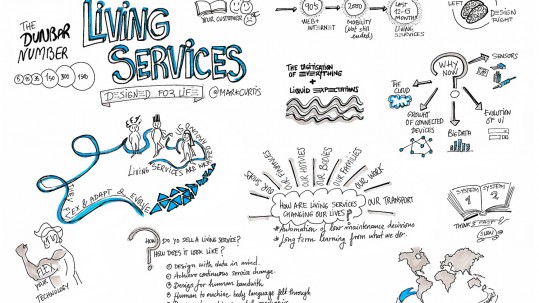 THE
DUNBAR
NUMBER
5 15 35 150 500 1500
LIVING
SERVICES
DESIGNED FOR LIFE
@MARKCURTIS
YOUR CUSTOMER
90'S
WEB + INTERNET
2000
MOBILITY
(NOT STILL ENDED)
LAST
12-15
MONTHS
LIVING
SERVICES
LEFT
DESIGN
RIGHT
THE DIGITISATION
OF EVERYTHING
+
LIQUID EXPECTATIONS
WHY
NOW?
SENSORS
THE
CLOUD
GROWTH
OF CONNECTED
DEVICES
BIG DATA
EVOLUTION
OF UI
LIVING SERVICES ARE
& ADAPT & EVOLVE
OUR FINANCES
OUR HOMES
OUR BODIES
OUR FAMILIES
OUR WORK
OUR TRANSPORT
HOW ARE LIVING SERVICES
CHANGING OUR LIVES?
* Automation of low maintenance decisions
* Long term learning from what we do.
SYSTEM
1
SYSTEM
2
FLEX
YOUR
TECHNOLOGY
HOW DO YOU SELL A LIVING SERVICE?
HOW DOES IT LOOK LIKE?
① Design with data in mind.
② Achieve continuous service change.
③ Design for human bandwith
④ Human to machine body language sell through